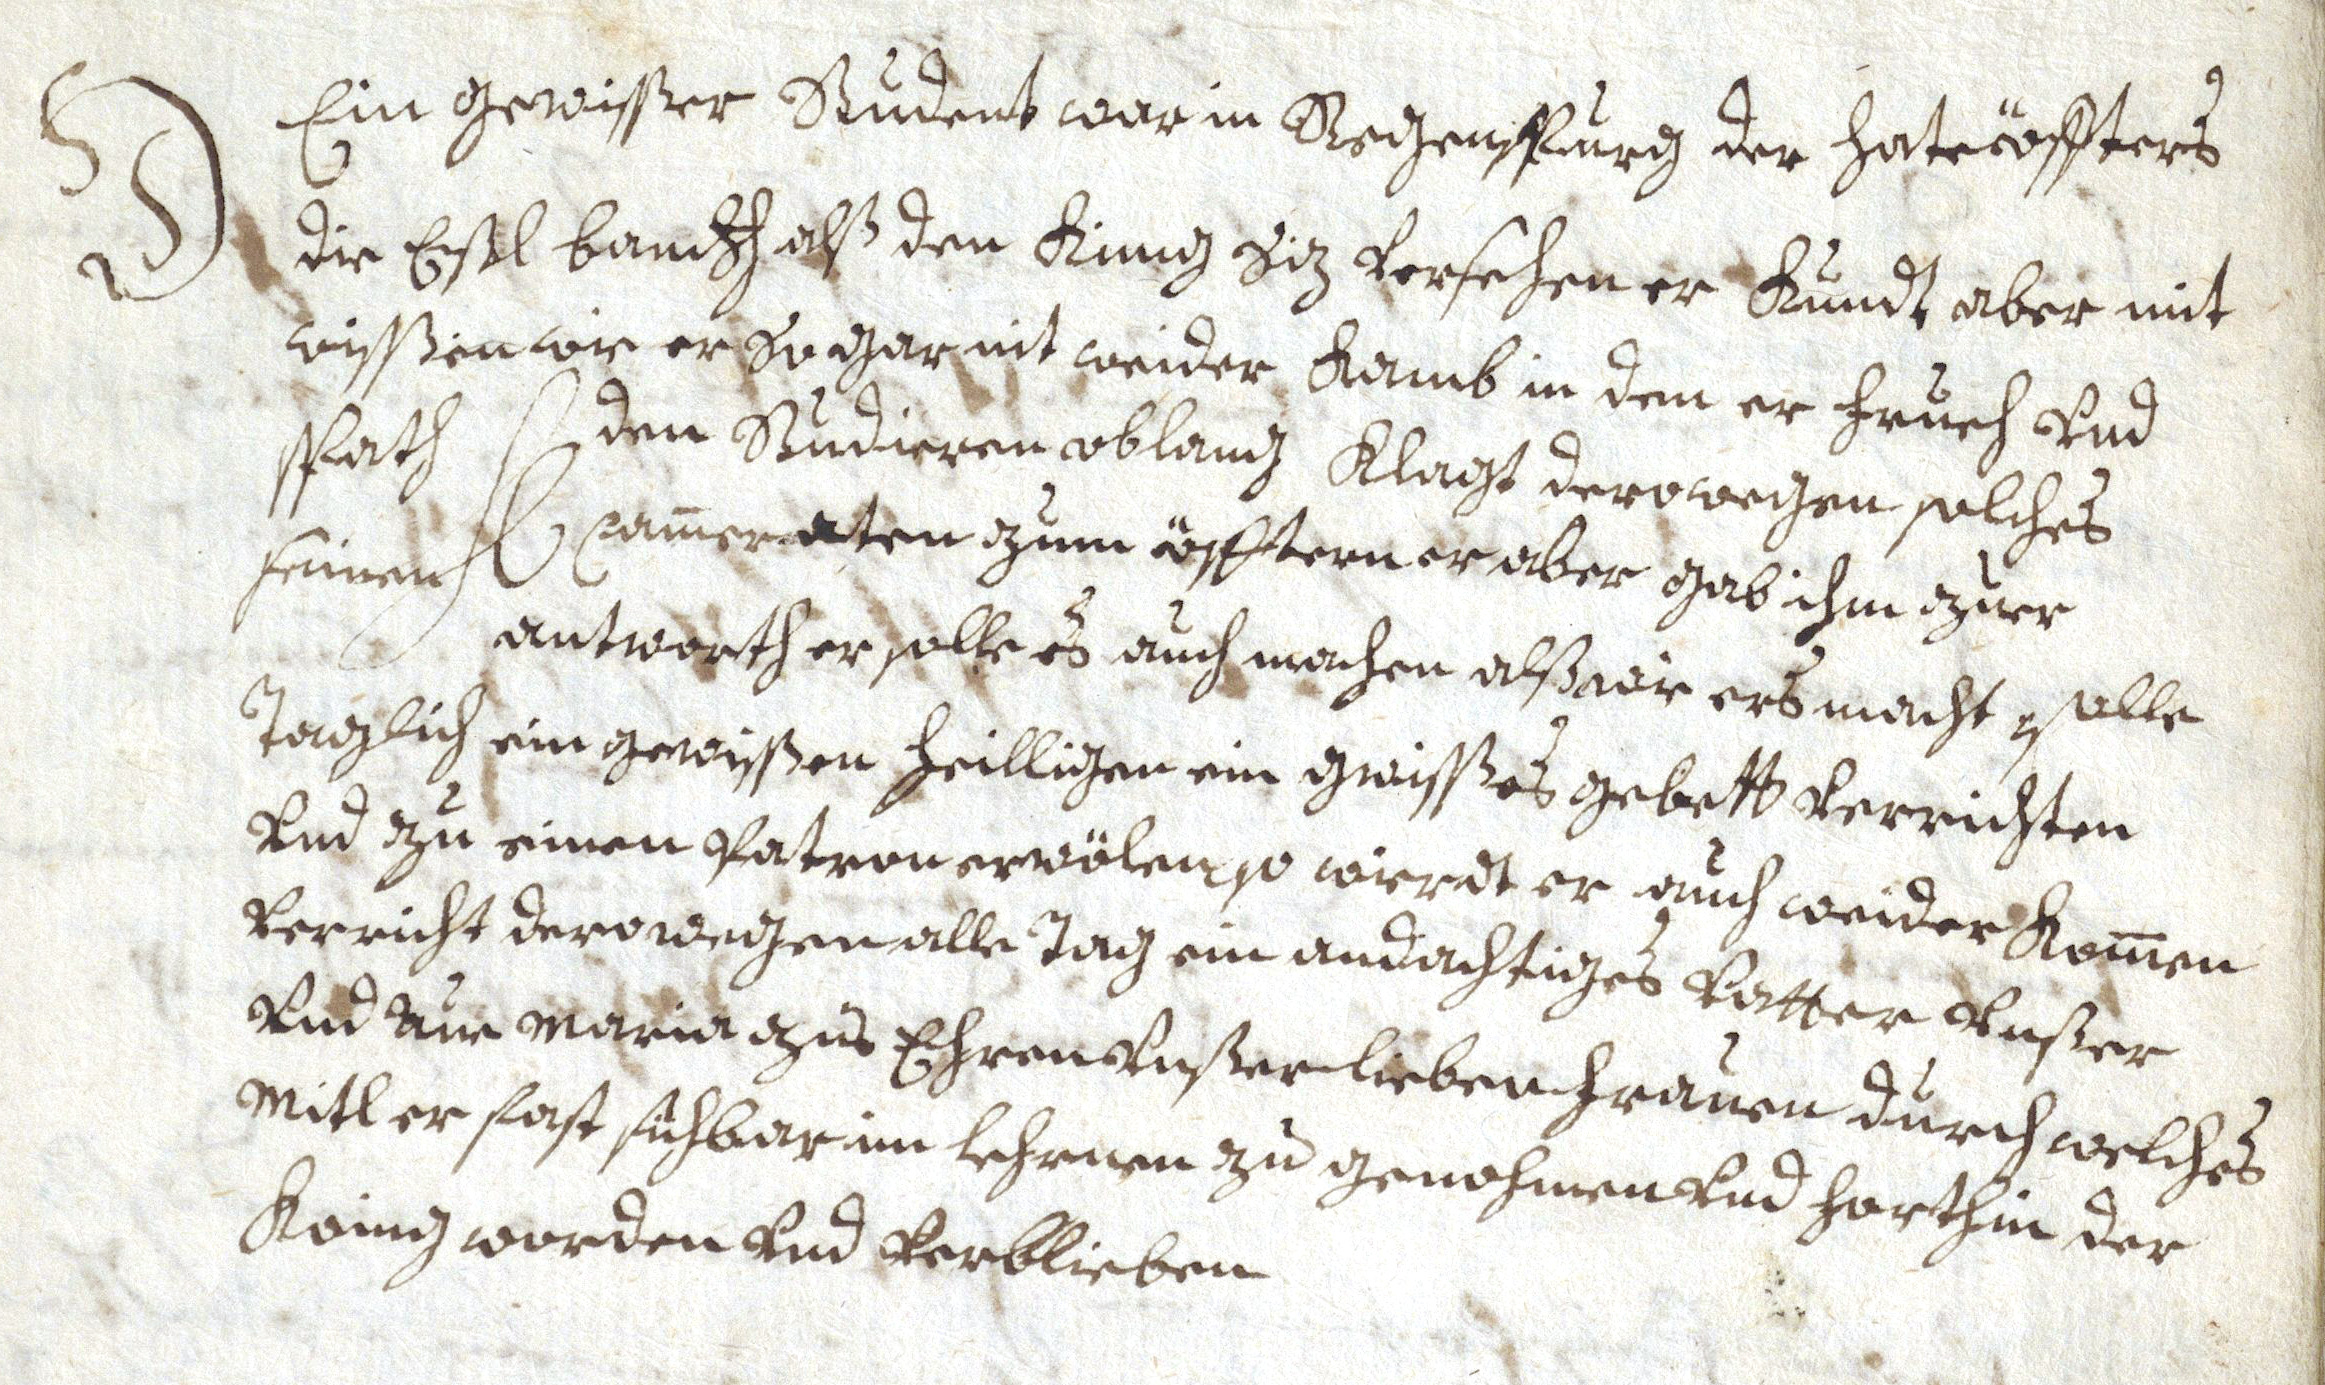 Ein gewisser Student war in Regenspurg der hate öffters
die Eßl banckh alß den Kinig Siz versehen er kundt aber nit
wissen wie er so gar nit weider kamb in dem er frueh vnd
spath den Studieren oblang klagt derowegen solches
seinen Cam̄eraten zum öfftern er aber gab ihm zuer
antworth er solle es auch machen alß wie ers macht, solle
Taglich ein gewissen heilligen ein gwisses gebett verrichten
vnd zu einen Patron erwölen, so wierdt er auch weider kom̄en
verricht derowegen alle Tag ein andachtiges Vatter vnßer
vnd Aue Maria zu Ehren vnßer lieben frauen durch welches
Mitl er fast sichbar im lehrnen zu genohmen vnd forthin der
König worden vnd verblieben